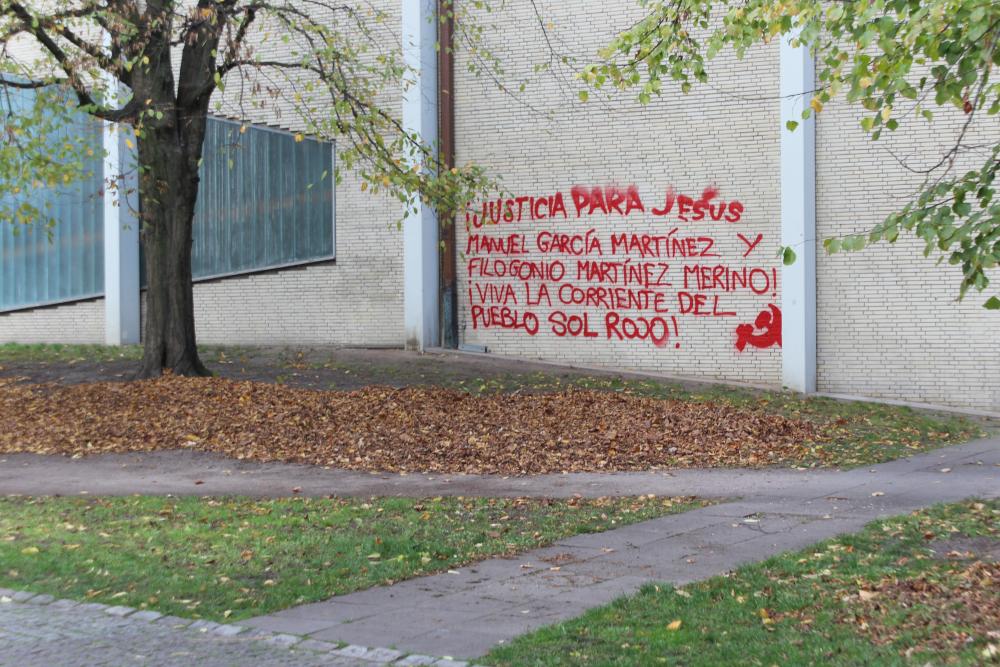 ¡JUSTICIA PARA JESÚS
MANUEL GARCÍA MARTÍNEZ Y
FILOGONIO MARTÍNEZ MERINO!
¡VIVA LA CORRIENTE DEL
PUEBLO SOL ROJO!